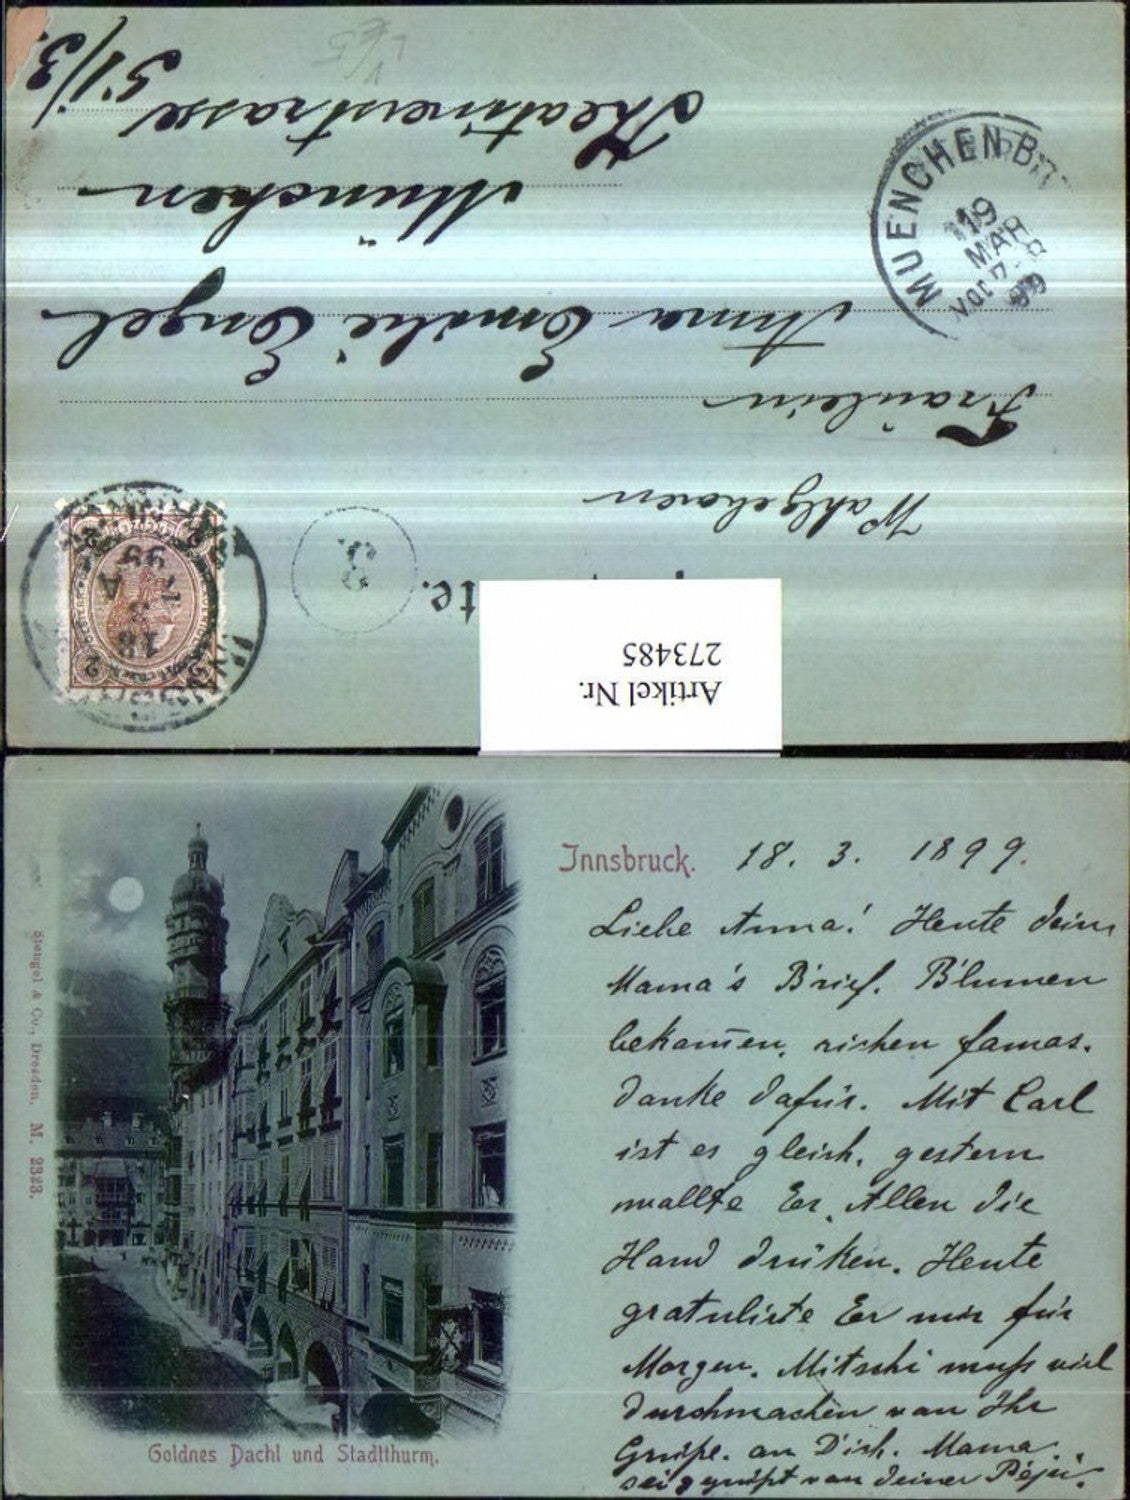 51/3.
Theatinerstrasse
München
Anna Emilie Engel
Fräulein
Wohlgeboren
te.
Artikel Nr.
273485
MUENCHEN B.
19
MAR
VOR 7-8
99
INNSBR
18
3
99
A
2
3
Innsbruck. 18. 3. 1899.
Liebe Anna! Heute dein
Mama's Brief. Blumen
bekom̄en, riehen famos.
danke dafür. Mit Carl
ist es gleich, gestern
wollte Er Allen die
Hand drüken. Heute
gratulirte Er mir für
Morgen. Mitschi muß viel
durchmachen von Ihr
Grüße. an Dich. Mama
sei geküßt von deiner Pepi.
Goldnes Dachl und Stadtthurm.
Stengel & Co., Dresden. M. 2323.